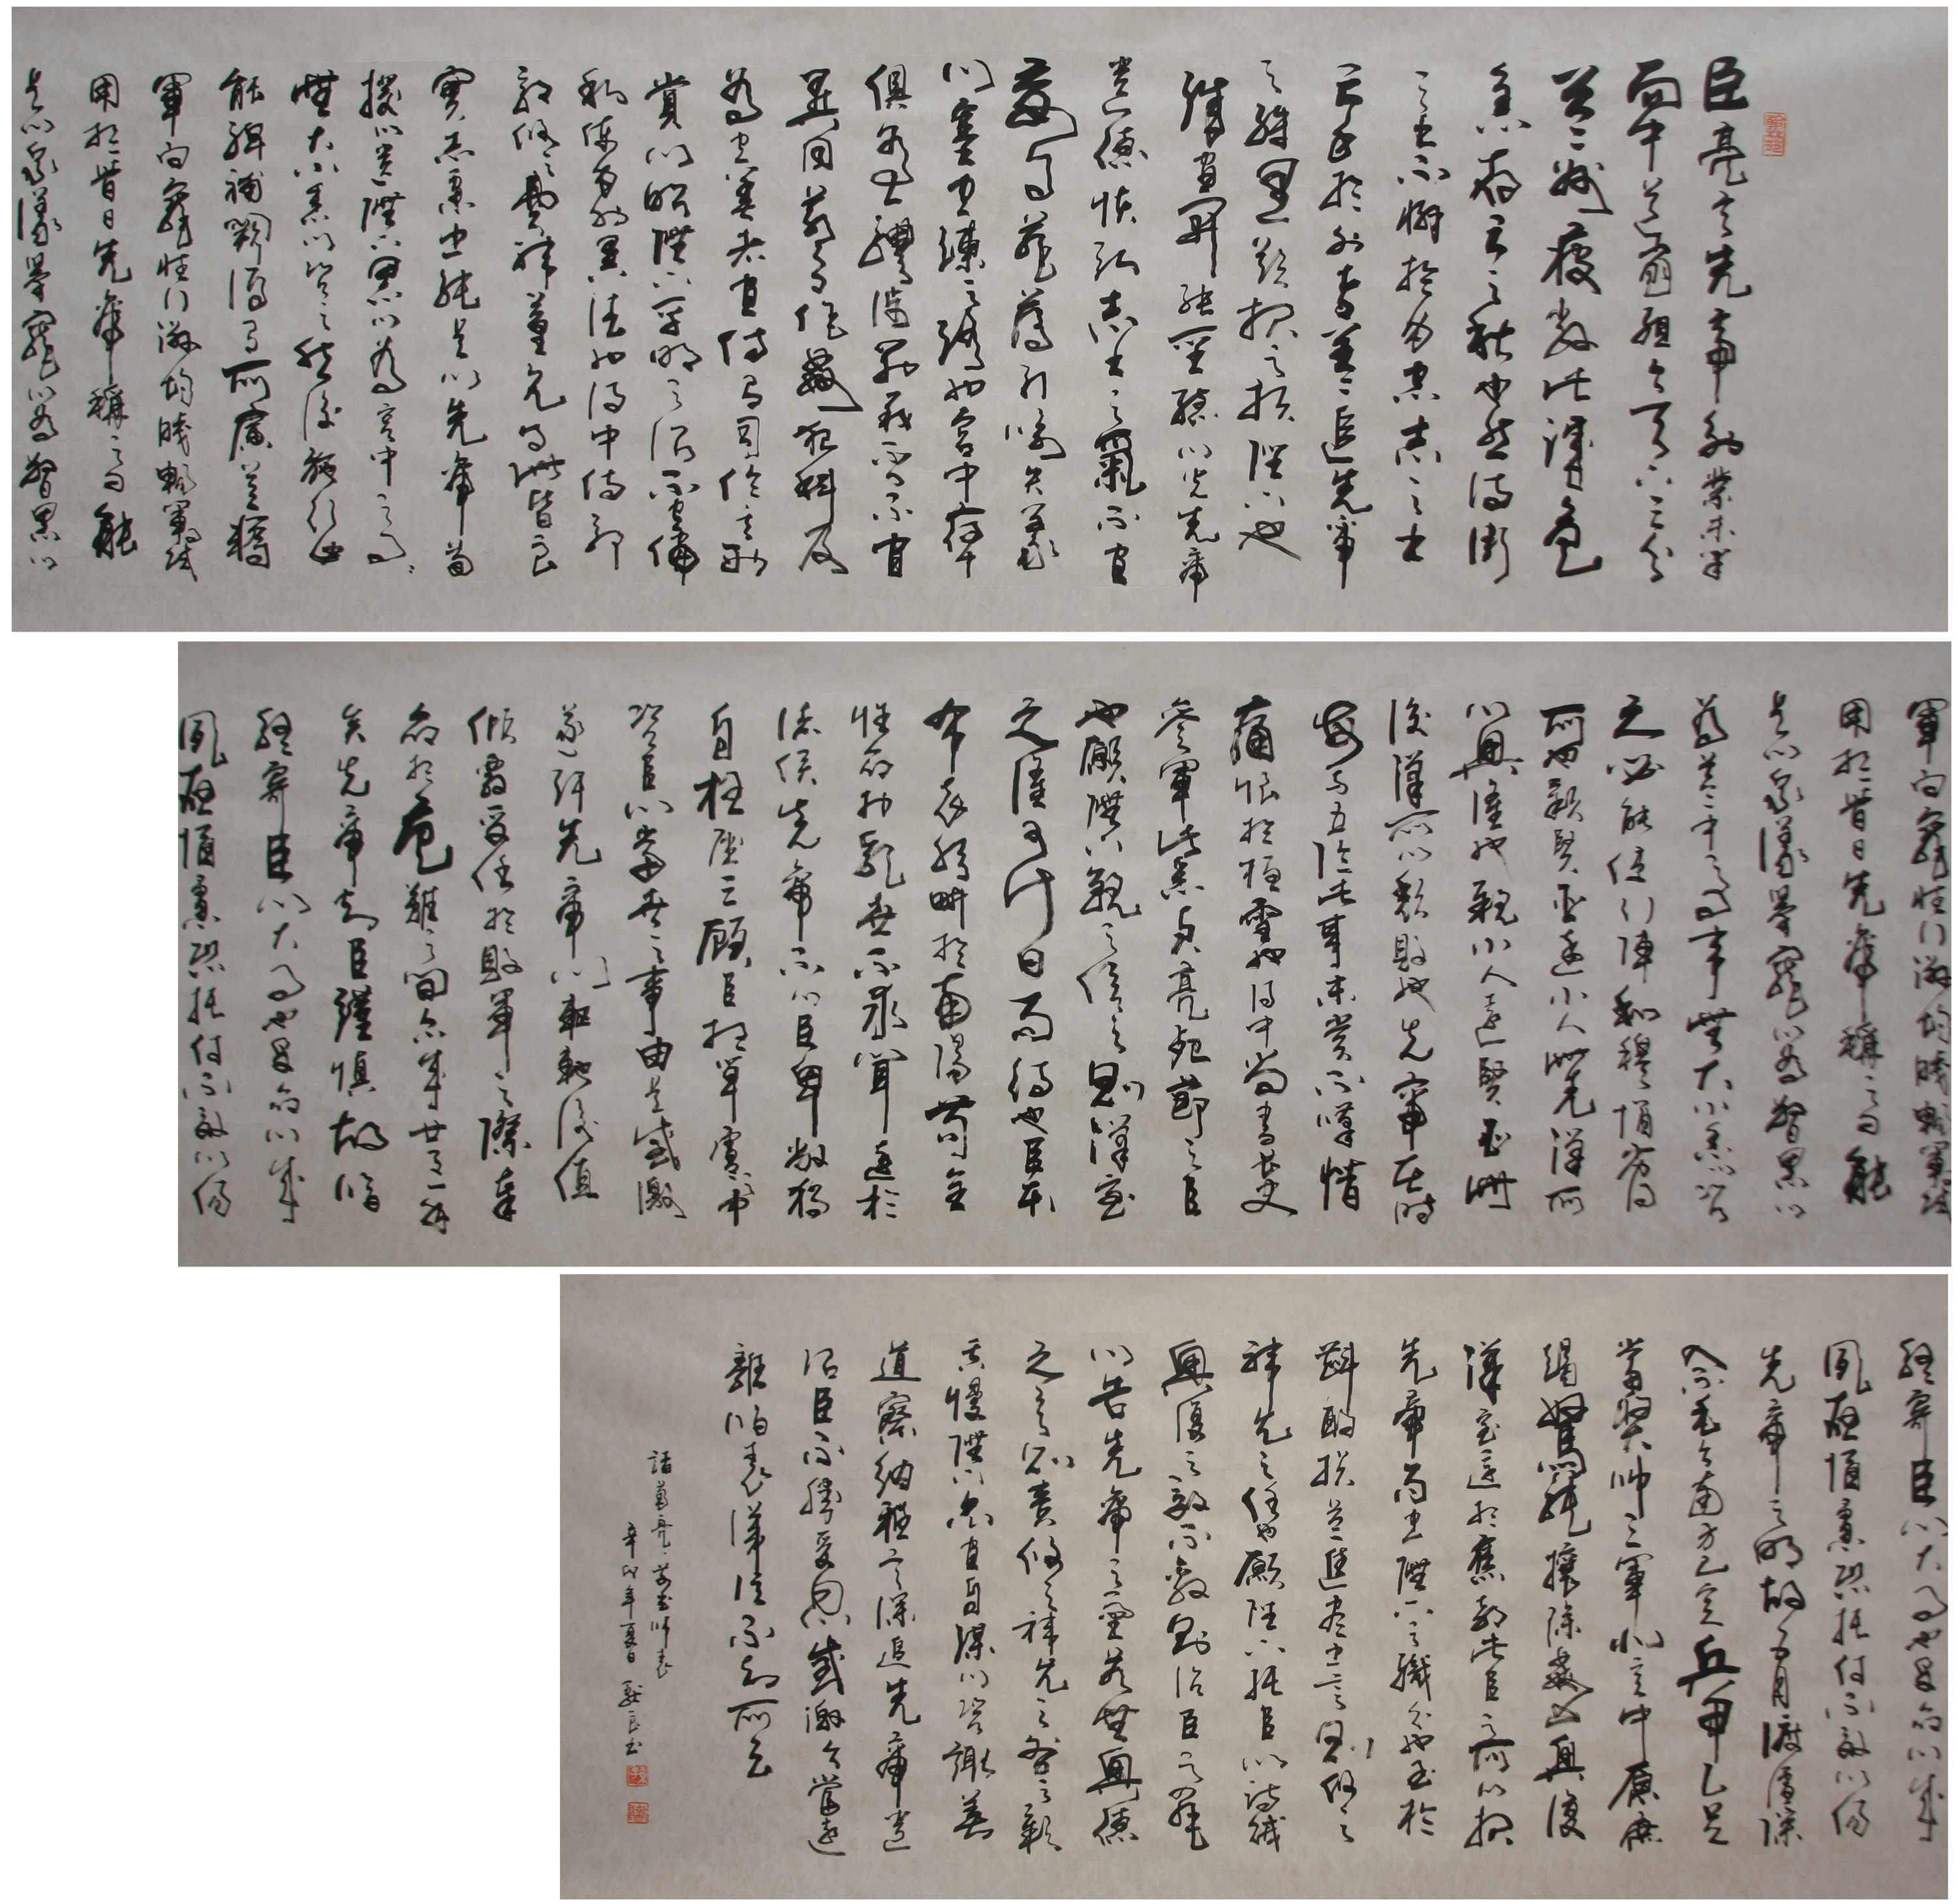 臣亮言先帝創業未半
而中道崩殂今天下三分
益州疲敝此誠危
急存亡之秋也然侍衛
之臣不懈於內忠志之士
亡身於外者蓋追先帝
之殊遇欲報之於陛下也
誠宜開張聖聽以光先帝
遺德恢弘志士之氣不宜
妄自菲薄引喻失義
以塞忠諫之路也宮中府中
俱為一體陟罰臧否不宜
異同若有作姦犯科及
為忠善者宜付有司論其刑
賞以昭陛下平明之治不宜偏
私使內外異法也侍中侍郎
郭攸之費禕董允等此皆良
實志慮忠純是以先帝簡
拔以遺陛下愚以為宮中之事
無大小悉以咨之然後施行必
能裨補闕漏有所廣益將
軍向寵性行淑均曉暢軍事試
用於昔日先帝稱之曰能
是以眾議舉寵以為督愚以
軍向寵性行淑均曉暢軍事試
用於昔日先帝稱之曰能
是以眾議舉寵以為督愚以
為營中之事事無大小悉以咨
之必能使行陣和穆優劣得
所也親賢臣遠小人此先漢所
以興隆也親小人遠賢臣此
後漢所以頹敗也先帝在時
每與臣論此事未嘗不嘆惜
痛恨於桓靈也侍中尚書長史
參軍此悉貞亮死節之臣
也願陛下親之信之則漢室
之隆可計日而待也臣本
布衣躬耕於南陽苟全
性命於亂世不求聞達於
諸侯先帝不以臣卑鄙猥
自枉屈三顧臣於草廬之中
諮臣以當世之事由是感激
遂許先帝以驅馳後值
傾覆受任於敗軍之際奉
命於危難之間爾來廿有一年
矣先帝知臣謹慎故臨
終寄臣以大事也受命以來
夙夜憂慮恐託付不效以傷
終寄臣以大事也受命以來
夙夜憂慮恐託付不效以傷
先帝之明故五月渡瀘深
入不毛今南方已定兵甲已足
當獎帥三軍北定中原庶
竭駑鈍攘除姦凶興復
漢室還於舊都此臣之所以報
先帝而忠陛下之職分也至於
斟酌損益進盡忠言則攸之
禕允之任也願陛下託臣以討賊
興復之效不效則治臣之罪
以告先帝之靈若無興德
之言則責攸之禕允之咎以彰
其慢陛下亦宜自謀以諮諏善
道察納雅言深追先帝遺
詔臣不勝受恩感激今當遠
離臨表涕泣不知所云
諸葛亮前出師表
辛卯年夏日 良書